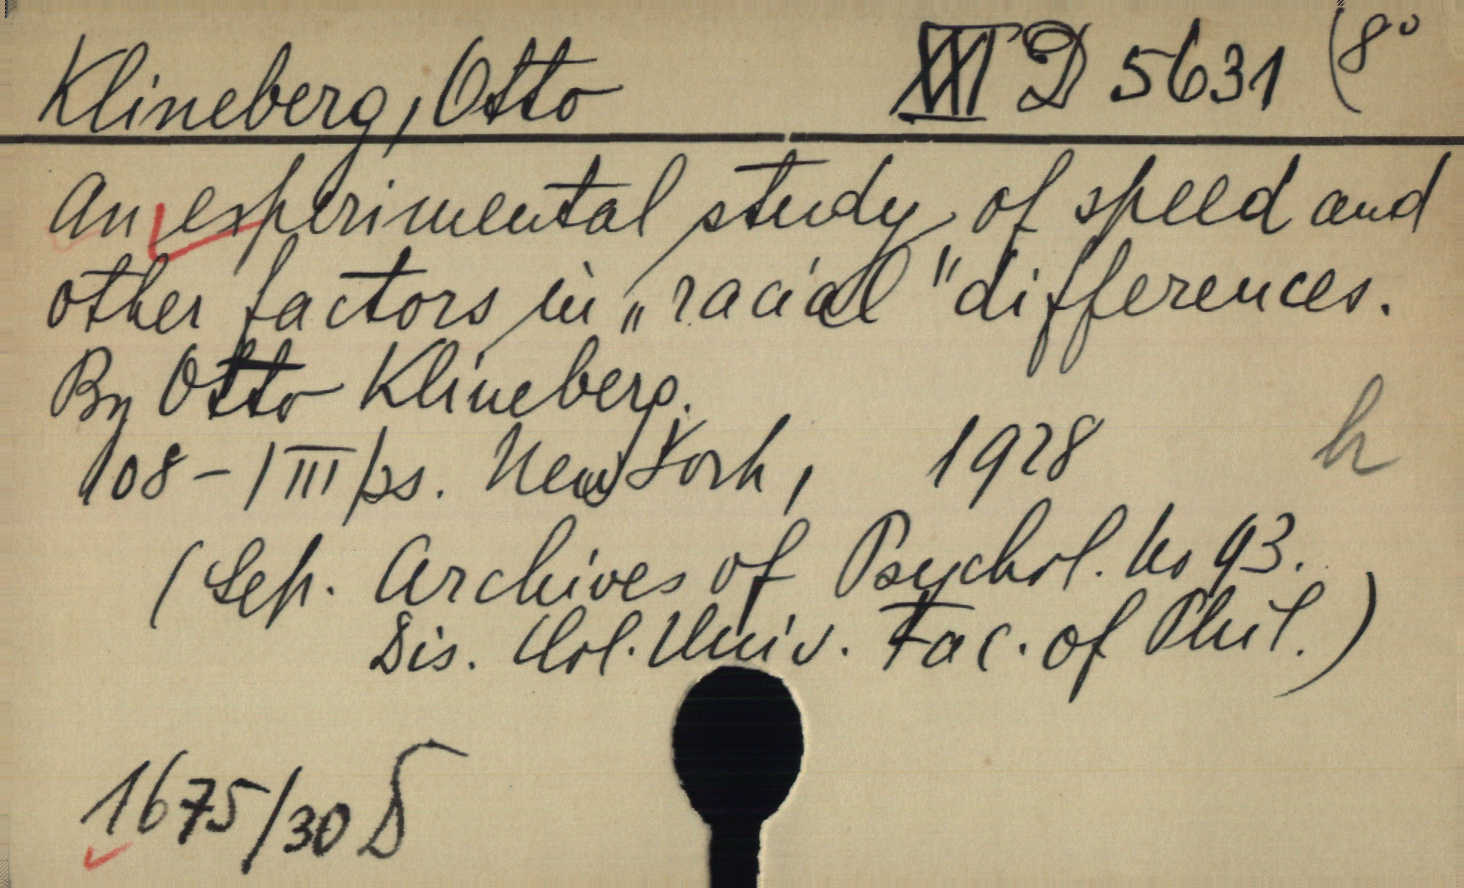 Klineberg, Otto XXI D 5631 (8°
An experimental study of speed and
other factors in „racial" differences.
By Otto Klineberg.
108 - I III ps. New York, 1928
h
(Sep. Archives of Psychol. No 93.
Dis. Col. Univ. Fac. of Phil.)
1675/30